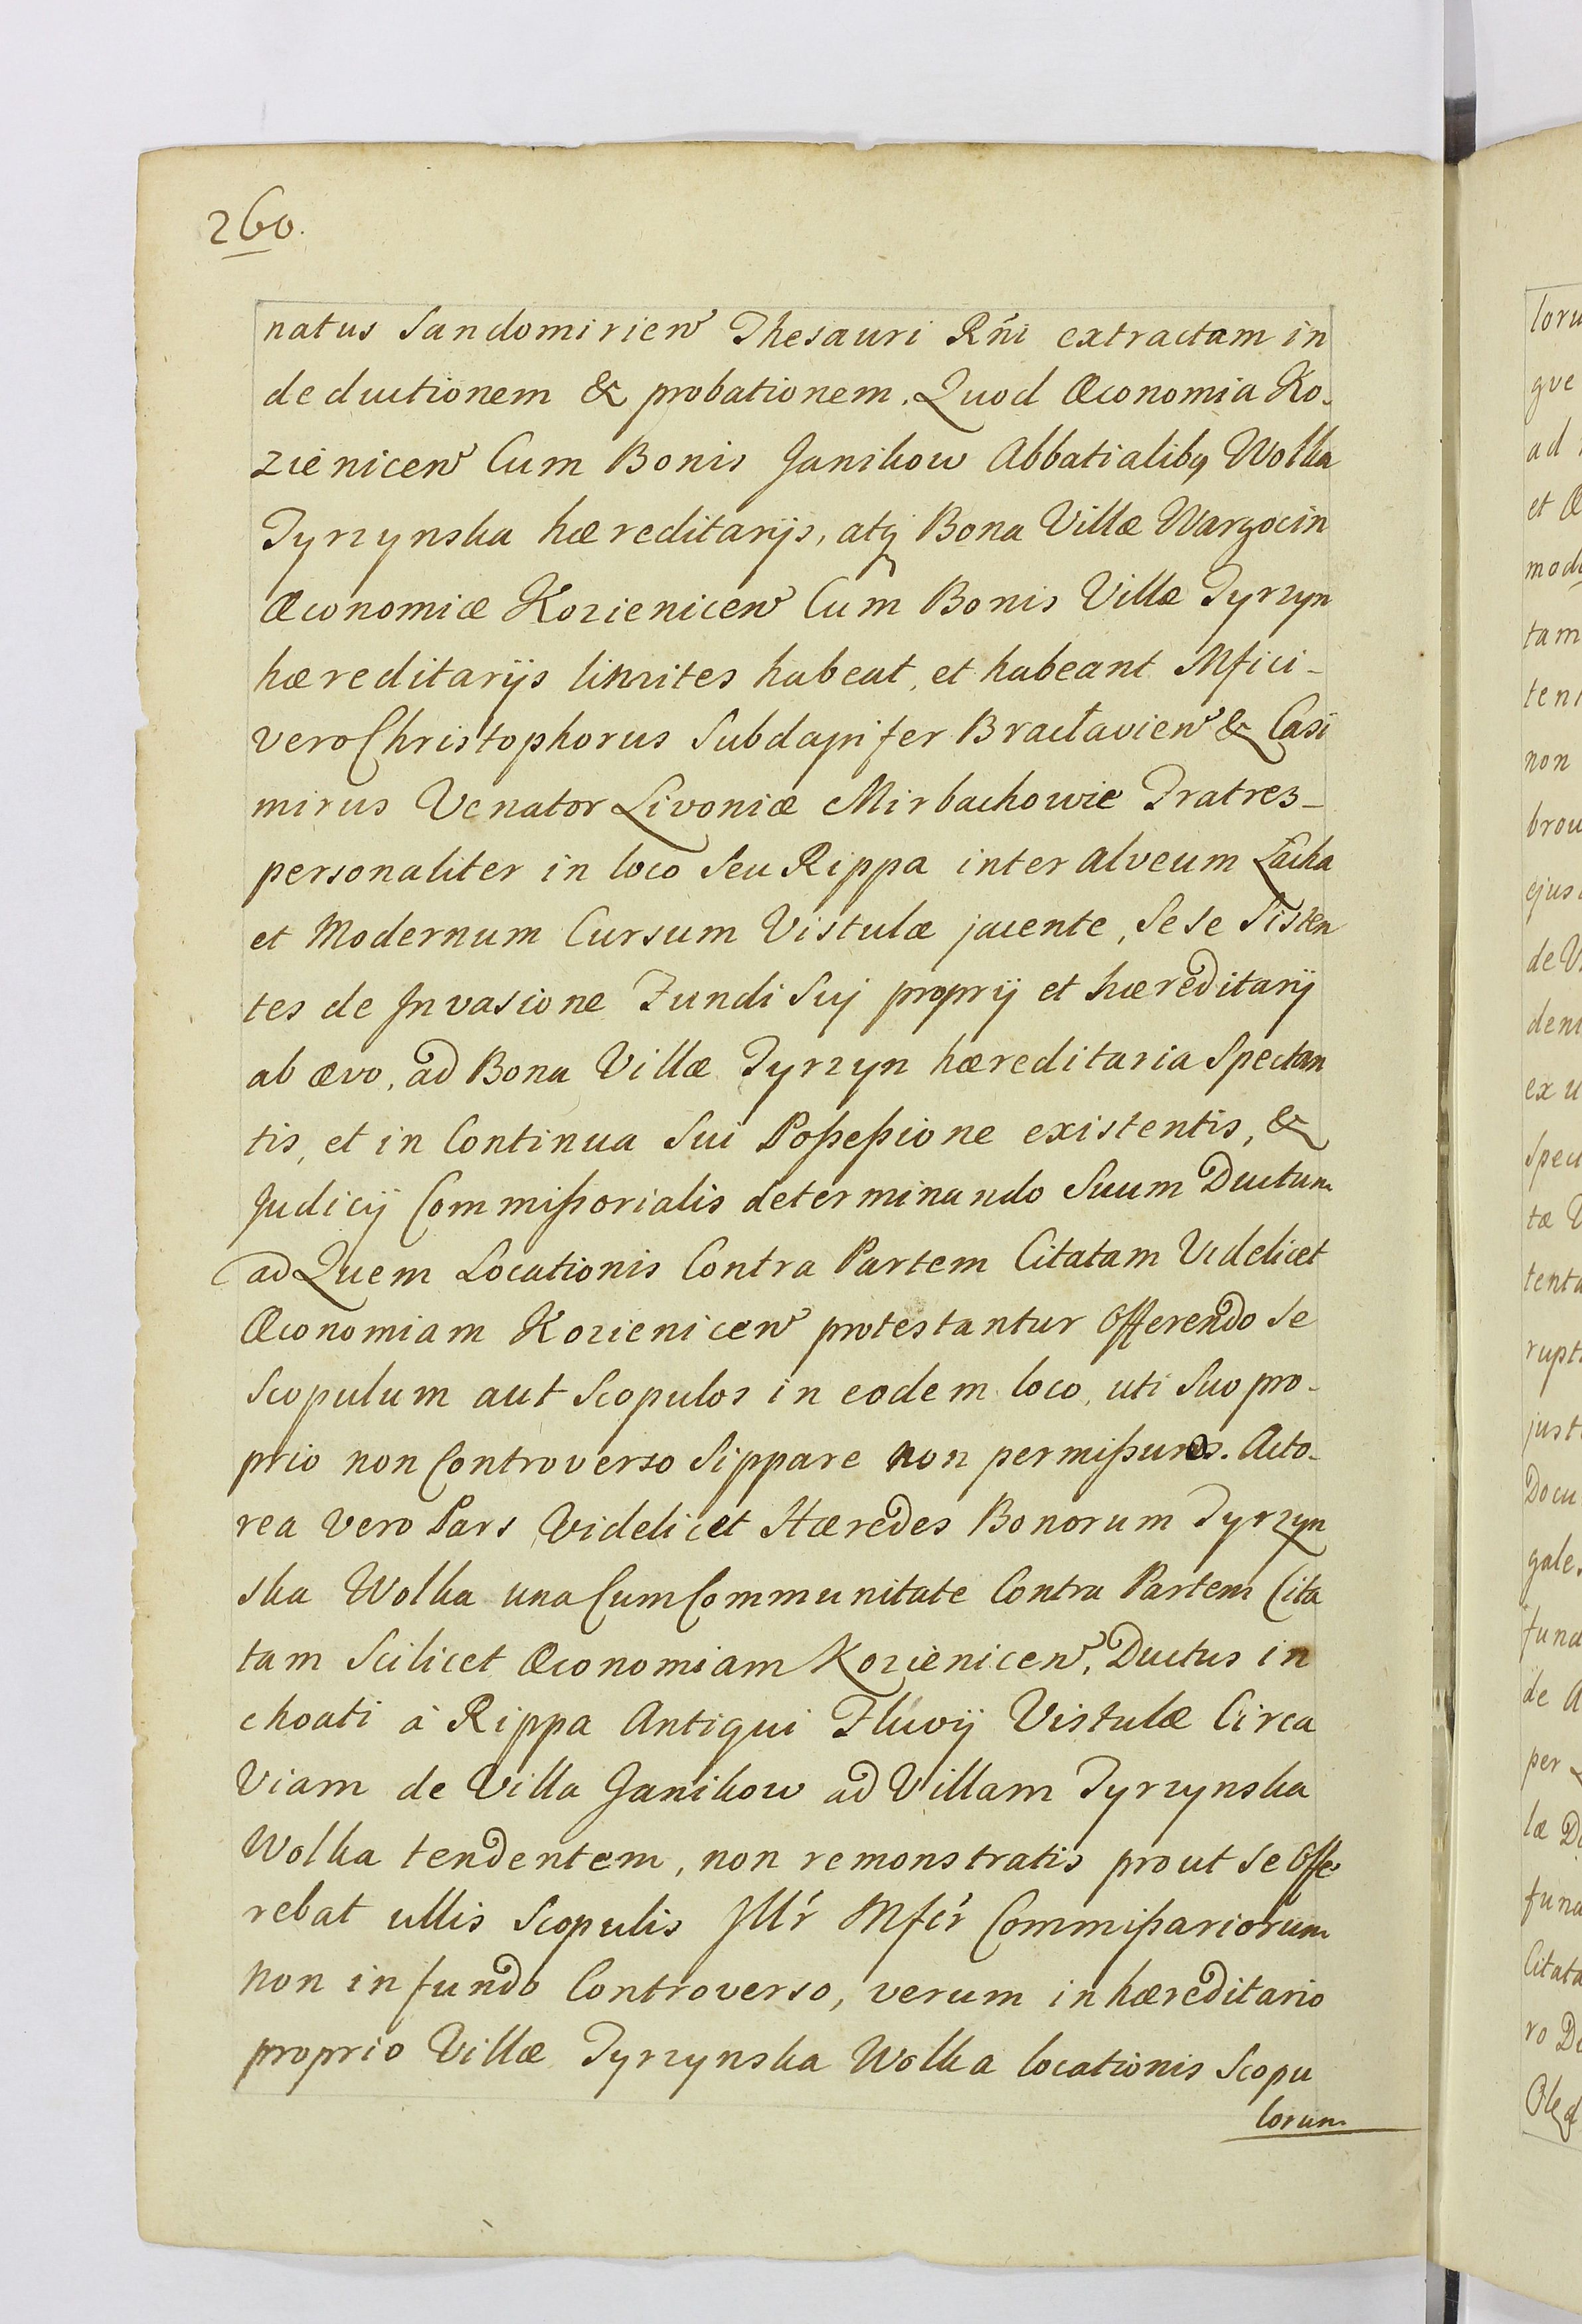 260.
natus Sandomirien Thesauri Rñi extractam in
deductionem & probationem. Quod Œconomia Ko-
zienicen Cum Bonis Janikow Abbatialibq Wolka
Tyrzynska hæreditarijs, atq Bona Villæ Wargocin
Œconomiæ Kozienicen Cum Bonis Villæ Tyrzyn
hæreditarijs limites habeat, et habeant Mfici-
vero Christophorus Subdapifer Bracłavien & Casi
mirus Venator Livoniæ Mirbachowie Fratres-
personaliter in loco Seu Rippa inter alveum Łacha
et Modernum Cursum Vistulæ jacente, Sese Sisten
tes de Invasione Fundi Suj proprij et hæreditarij
ab ævo, ad Bona Villæ Tyrzyn hæreditaria Spectan
tis, et in Continua Sui Poßeßione existentis, &
Judicij Commißorialis determinando Suum Ductum
ad Quem Locationis Contra Partem Citatam Videlicet
Œconomiam Kozienicen protestantur Offerendo Se
Scopulum aut Scopulos in eodem loco, uti Suo pro-
prio non Controverso Sippare non permißuros. Acto-
rea vero Pars Videlicet Hæredes Bonorum Tyrzyn
ska Wolka una Cum Communitate Contra Partem Cita
tam Scilicet Œconomiam Kozienicen, Ductus in
choati à Rippa Antiqui Fluvij Vistulæ Circa
Viam de Villa Janikow ad Villam Tyrzynska
Wolka tendentem, non remonstratis prout Se Offe-
rebat ullis Scopulis Illr̃ Mfcr̃ Commißariorum
non in fundo Controverso, verum in hæreditario
proprio Villæ Tyrzynska Wolka locationis Scopu
lorum